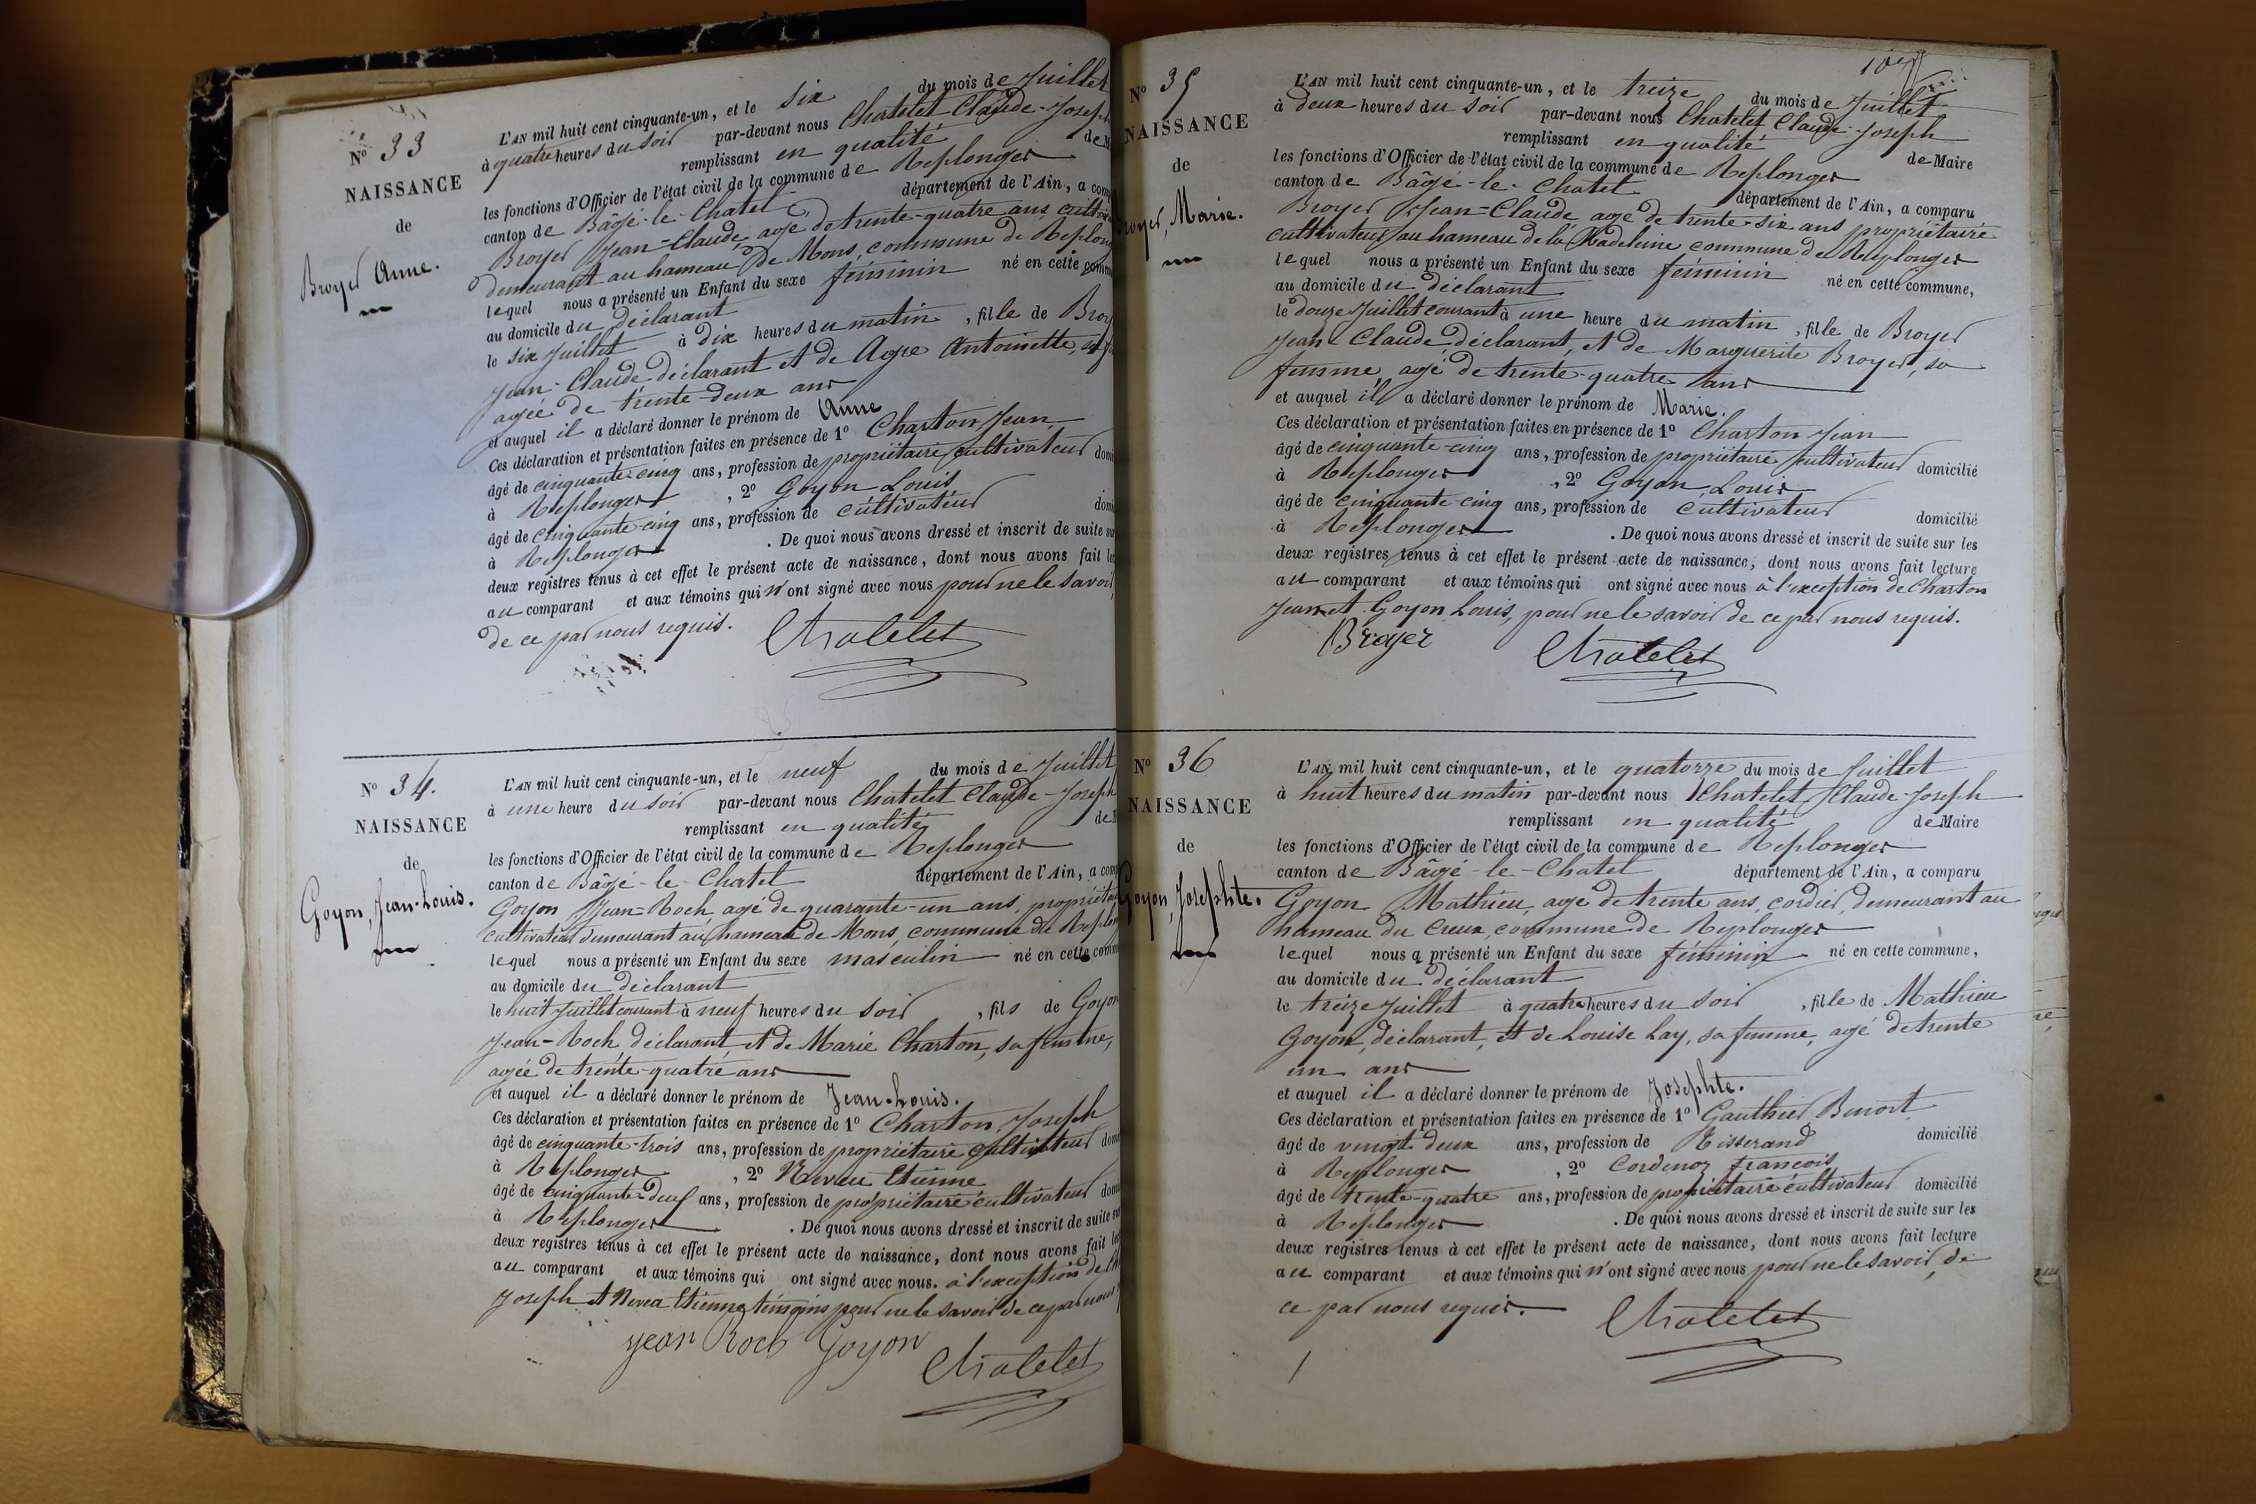 N° 33
NAISSANCE
de
Broyer Anne.
L'AN mil huit cent cinquante-un, et le six du mois de Juillet
à quatre heures du soir par-devant nous Chatelet Claude-Joseph
remplissant en qualité de
les fonctions d'Officier de l'état civil de la commune de Replonger
canton de Bâgé-le-Chatel département de l'Ain, a
Broyer Jean-Claude, agé de trente-quatre ans,
demeurant au hameau de Mons, commune de
lequel nous a présenté un Enfant du sexe féminin né en cette
au domicile du déclarant
le six Juillet à dix heures du matin, fille de
Jean-Claude déclarant et de Agre Antoinette,
agée de trente-deux ans
et auquel il a déclaré donner le prénom de Anne
Ces déclaration et présentation faites en présence de 1° Charton Jean
âgé de cinquante-cinq ans, profession de propriétaire cultivateur
à Replonger, 2° Goyon Louis
âgé de cinquante-cinq ans, profession de cultivateur
à Replonger. De quoi nous avons dressé et inscrit de suite
deux registres tenus à cet effet le présent acte de naissance, dont nous avons fait
au comparant et aux témoins qui n'ont signé avec nous pour ne le savoir,
de ce par nous requis. Chatelet
N° 34.
NAISSANCE
de
Goyon, Jean-Louis.
L'AN mil huit cent cinquante-un, et le neuf du mois de Juillet
à une heure du soir par-devant nous Chatelet Claude-Joseph
remplissant en qualité de
les fonctions d'Officier de l'état civil de la commune de Replonger
canton de Bâgé-le-Chatel département de l'Ain, a
Goyon Jean-Roch, agé de quarante-un ans,
cultivateur demeurant au hameau de Mons, commune de
lequel nous a présenté un Enfant du sexe masculin né en cette
au domicile du déclarant
le huit Juillet courant à neuf heures du soir, fils de Goyon
Jean-Roch déclarant, et de Marie Charton, sa femme,
agée de trente-quatre ans
et auquel il a déclaré donner le prénom de Jean-Louis.
Ces déclaration et présentation faites en présence de 1° Charton Joseph
âgé de cinquante-trois ans, profession de propriétaire cultivateur
à Replonger, 2° Neveu Etienne
âgé de ans, profession de propriétaire cultivateur
à Replonger. De quoi nous avons dressé et inscrit de suite
deux registres tenus à cet effet le présent acte de naissance, dont nous avons fait
au comparant et aux témoins qui ont signé avec nous. à l'exception de
Joseph et Etienne témoins pour ne le savoir de ce par nous
jean Roch Goyon
Chatelet
N° 35
NAISSANCE
de
Broyer, Marie.
L'AN mil huit cent cinquante-un, et le treize du mois de Juillet
à deux heures du soir par-devant nous Chatelet Claude-Joseph
remplissant en qualité de Maire
les fonctions d'Officier de l'état civil de la commune de Replonger
canton de Bâgé-le-Chatel département de l'Ain, a comparu
Broyer Jean-Claude, agé de trente-six ans propriétaire
cultivateur au hameau de la Madeleine commune de Replonger
lequel nous a présenté un Enfant du sexe féminin né en cette commune,
au domicile du déclarant
le douze Juillet courant à une heure du matin, fille de Broyer
Jean-Claude déclarant, et de Marguerite Broyer, sa
femme, agé de trente-quatre ans
et auquel il a déclaré donner le prénom de Marie.
Ces déclaration et présentation faites en présence de 1° Charton Jean
âgé de cinquante-cinq ans, profession de propriétaire cultivateur domicilié
à Replonger, 2° Goyon Louis
âgé de cinquante-cinq ans, profession de cultivateur domicilié
à Replonger. De quoi nous avons dressé et inscrit de suite sur les
deux registres tenus à cet effet le présent acte de naissance, dont nous avons fait lecture
au comparant et aux témoins qui ont signé avec nous à l'exception de Charton
Jean et Goyon Louis, pour ne le savoir de ce par nous requis.
Broyer Chatelet
N° 36
NAISSANCE
de
Goyon, Josephte.
L'AN mil huit cent cinquante-un, et le quatorze du mois de Juillet
à huit heures du matin par-devant nous Chatelet Claude-Joseph
remplissant en qualité de Maire
les fonctions d'Officier de l'état civil de la commune de Replonger
canton de Bâgé-le-Chatel département de l'Ain, a comparu
Goyon Mathieu, agé de trente ans, cordier, demeurant au
hameau du Creux, commune de Replonger
lequel nous a présenté un Enfant du sexe féminin né en cette commune,
au domicile du déclarant
le treize Juillet à quatre heures du soir, fille de Mathieu
Goyon, déclarant, et de Louise Lay, sa femme, agé de trente
un ans
et auquel il a déclaré donner le prénom de Josephte.
Ces déclaration et présentation faites en présence de 1° Gauthier Benoit
âgé de vingt-deux ans, profession de Tisserand domicilié
à Replonger, 2° Cordenoz françois
âgé de trente-quatre ans, profession de propriétaire cultivateur domicilié
à Replonger. De quoi nous avons dressé et inscrit de suite sur les
deux registres tenus à cet effet le présent acte de naissance, dont nous avons fait lecture
au comparant et aux témoins qui n'ont signé avec nous pour ne le savoir, de
ce par nous requis. Chatelet